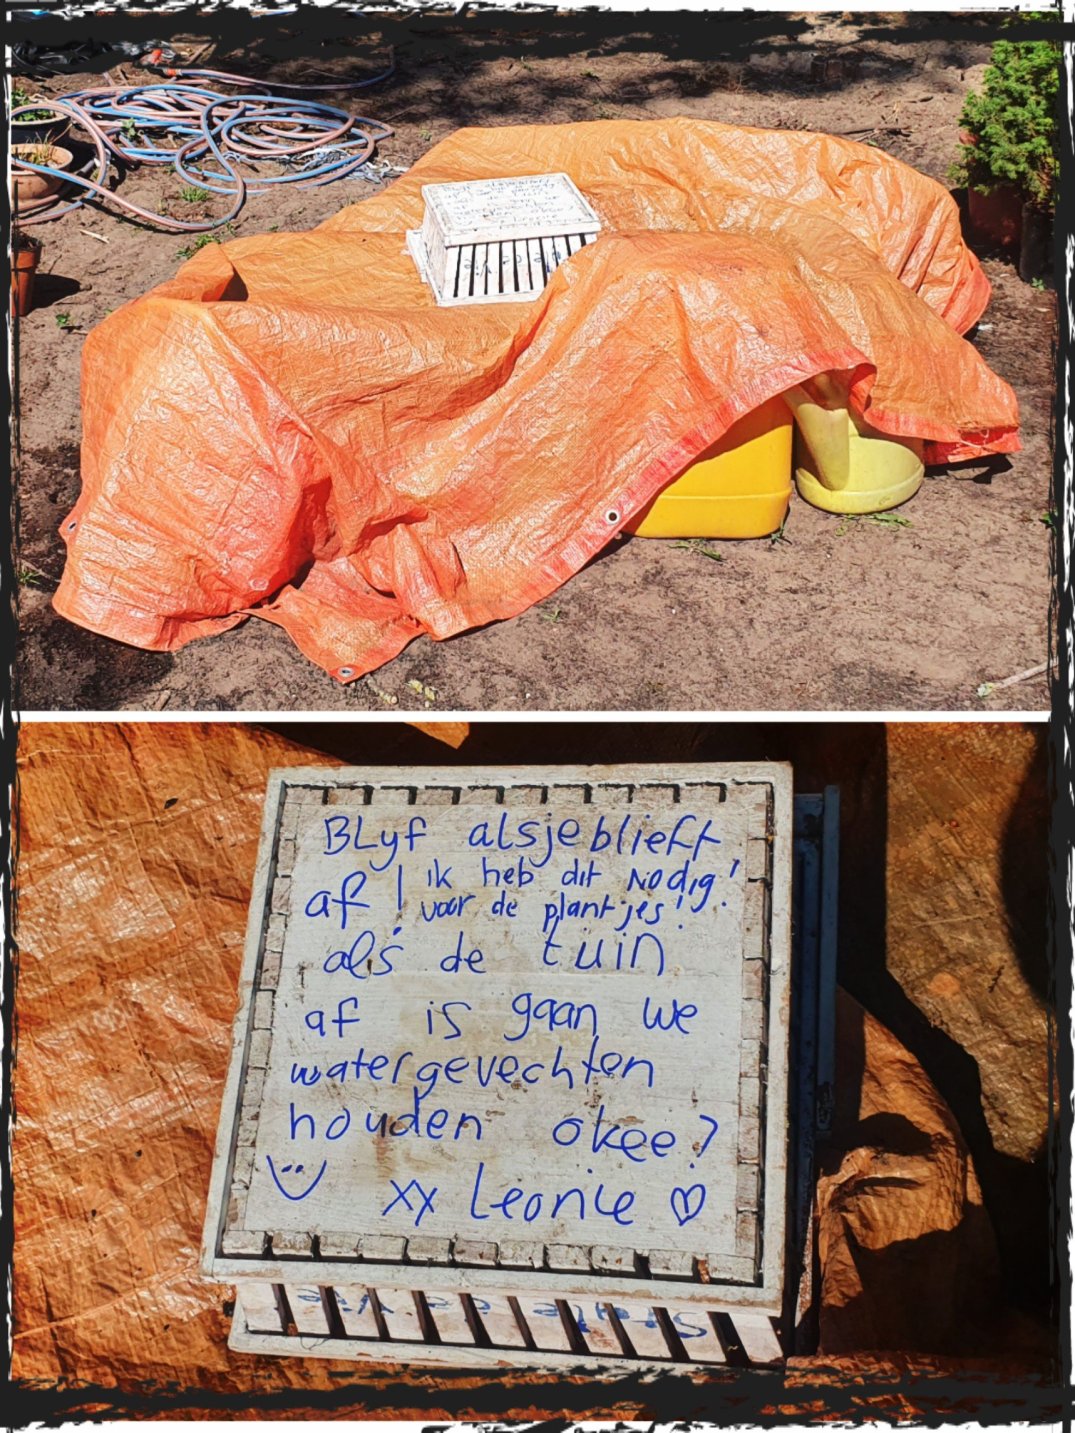 BLyf alsjeblieft
af! ik heb dit Nodig!
voor de plantjes!
als de tuin
af is gaan we
watergevechten
houden okee?
xx Leonie